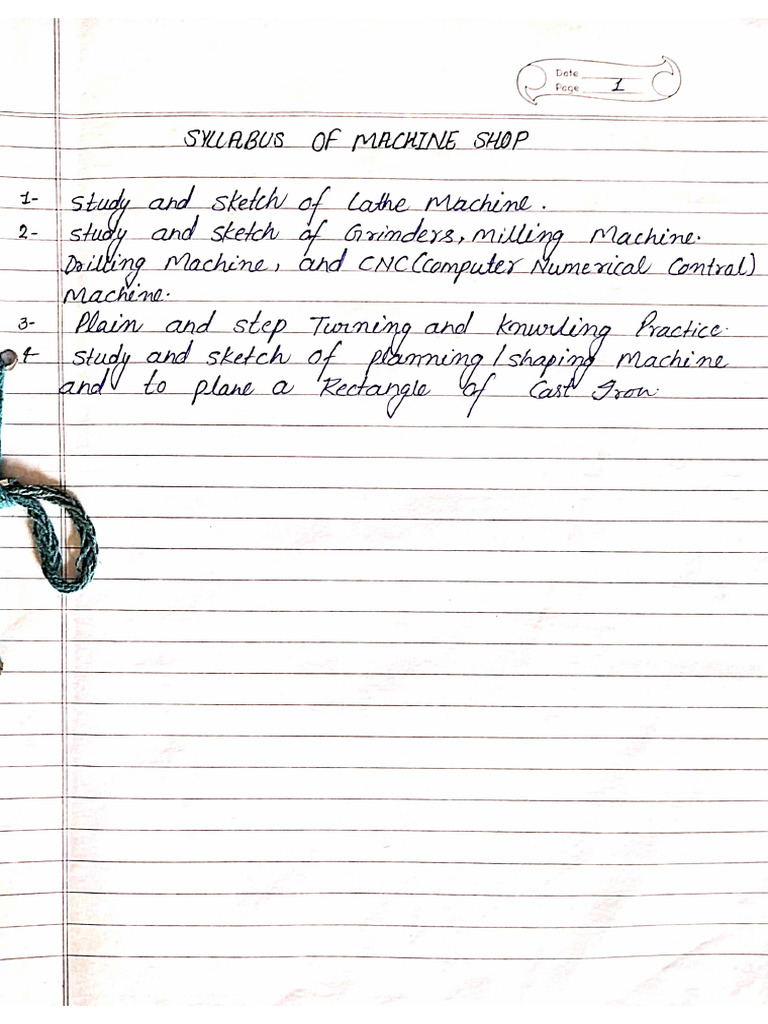 Date
Page 1
SYLLABUS OF MACHINE SHOP
1- Study and sketch of Lathe Machine.
2- study and sketch of Grinders, Milling Machine.
Drilling Machine, and CNC (Computer Numerical Control)
Machine.
3- Plain and step Turning and Knurling Practice.
4- study and sketch of planning / shaping Machine
and to plane a Rectangle of Cast Iron.